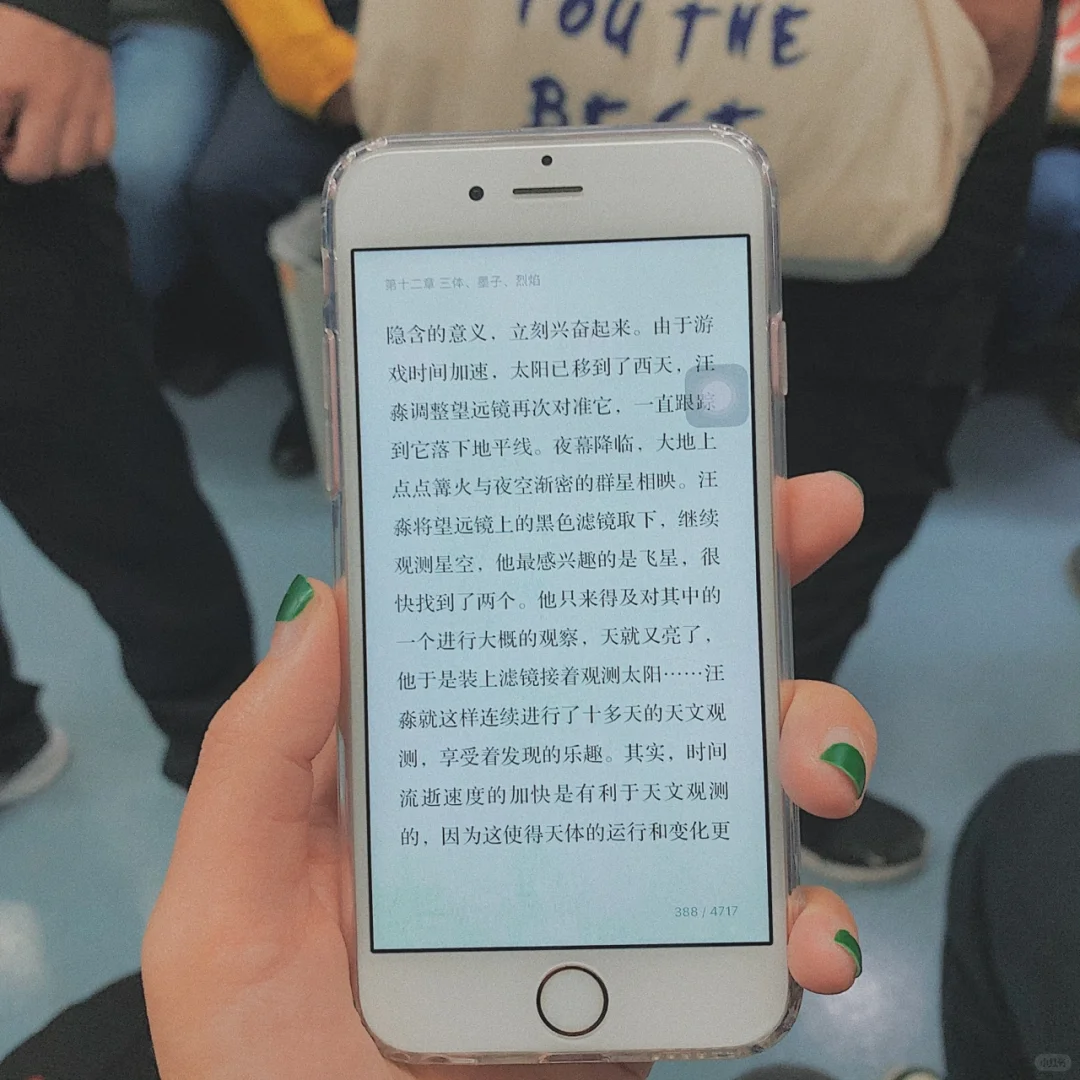 YOU THE
BEST
第十二章 三体、墨子、烈焰
隐含的意义，立刻兴奋起来。由于游
戏时间加速，太阳已移到了西天，汪
淼调整望远镜再次对准它，一直跟踪
到它落下地平线。夜幕降临，大地上
点点篝火与夜空渐密的群星相映。汪
淼将望远镜上的黑色滤镜取下，继续
观测星空，他最感兴趣的是飞星，很
快找到了两个。他只来得及对其中的
一个进行大概的观察，天就又亮了，
他于是装上滤镜接着观测太阳……汪
淼就这样连续进行了十多天的天文观
测，享受着发现的乐趣。其实，时间
流逝速度的加快是有利于天文观测
的，因为这使得天体的运行和变化更
388 / 4717
小红书